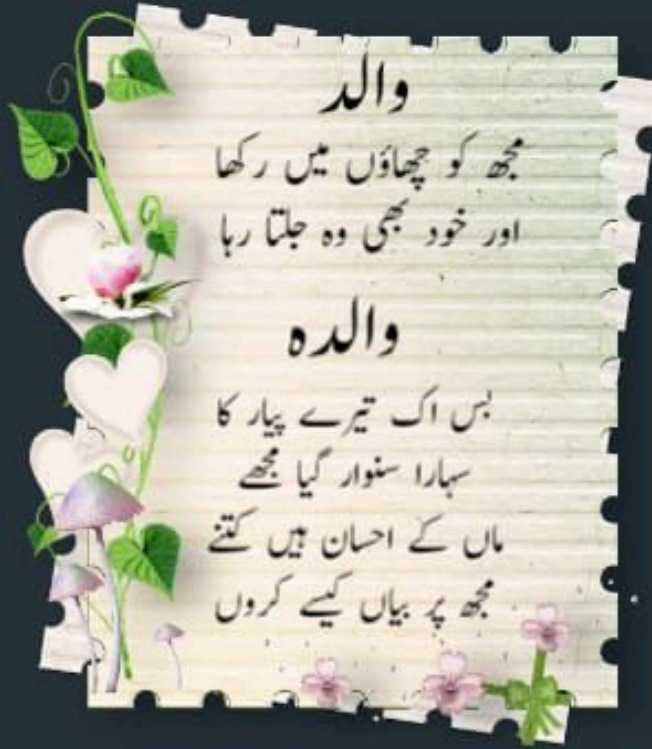 والد
مجھ کو چھاؤں میں رکھا
اور خود بھی وہ جلتا رہا
والدہ
بس اک تیرے پیار کا
سہارا سنوار گیا مجھے
ماں کے احسان ہیں کتنے
مجھ پر بیاں کیسے کروں